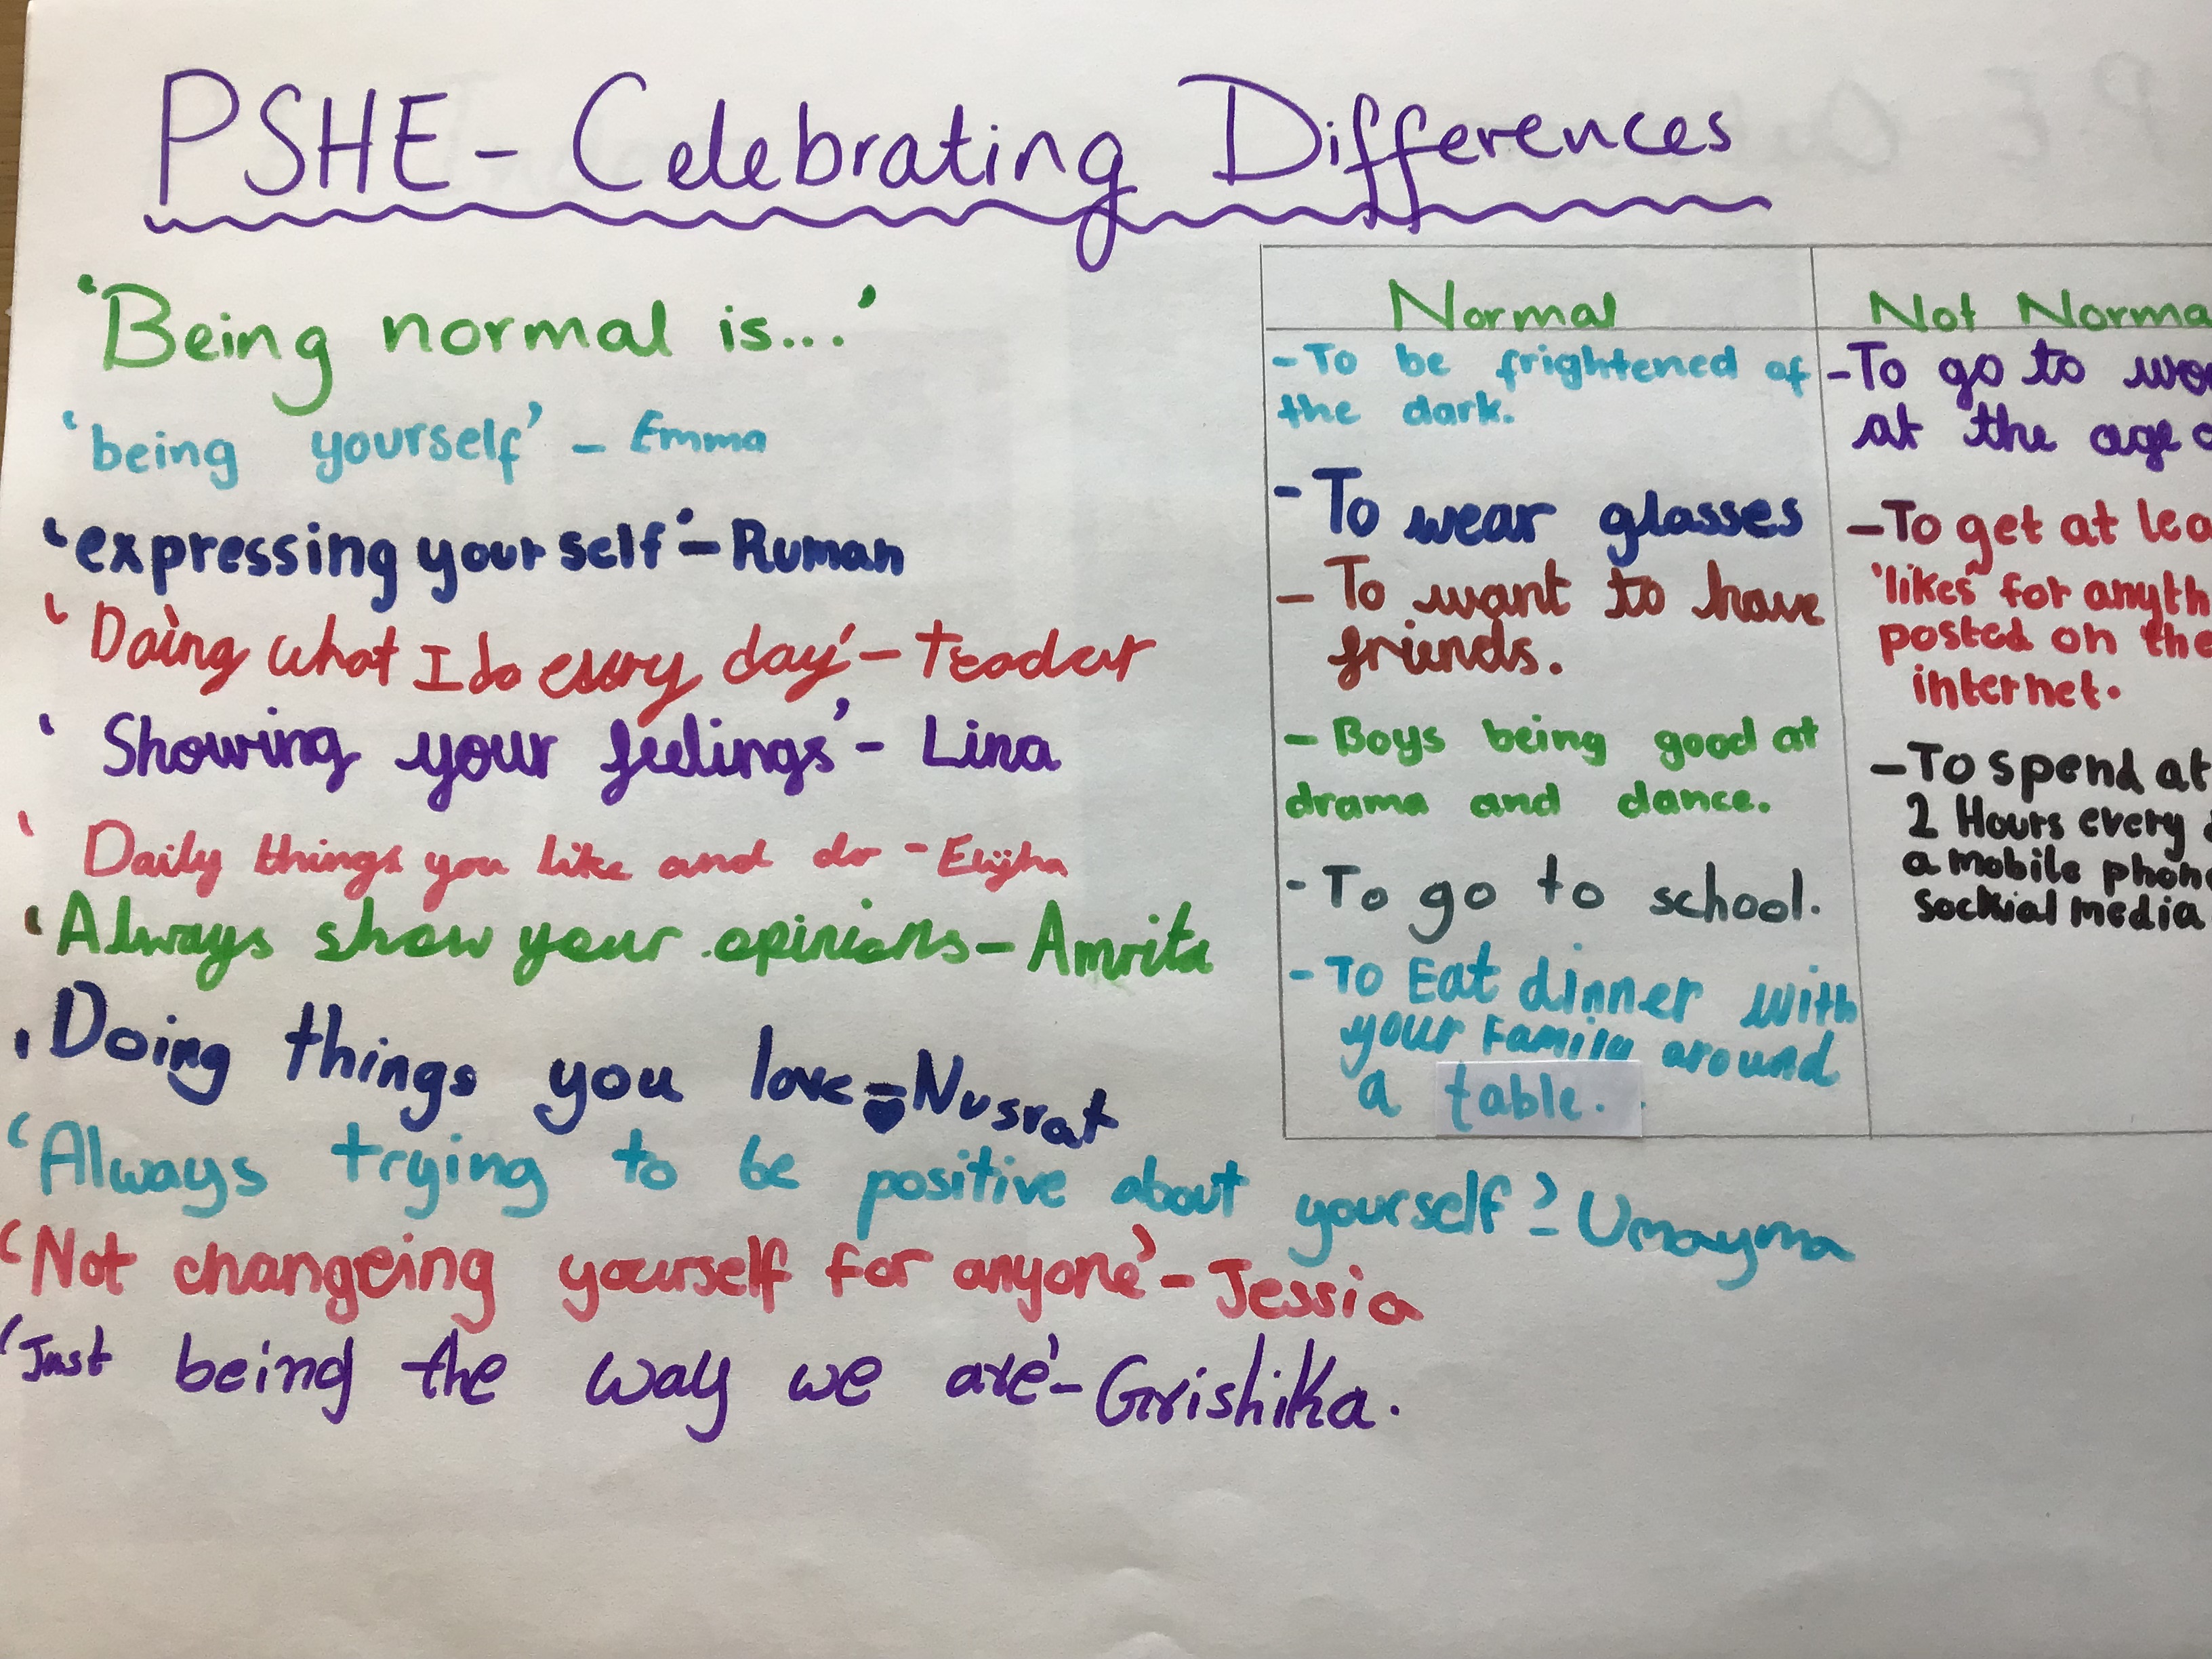 PSHE - Celebrating Differences
'Being normal is...'
'being yourself' - Emma
'expressing your self' - Ruman
'Doing what I do every day' -
'Showing your feelings' - Lina
'Daily things you like and do -
'Always show your opinions - Amrita
'Doing things you love - Nusrat
'Always trying to be positive about yourself' - Umayma
'Not changeing yourself for anyone' - Jessia
'Just being the way we are' - Grishika.
Normal
- To be frightened of
the dark.
- To wear glasses
- To want to have
friends.
- Boys being good at
drama and dance.
- To go to school.
- To Eat dinner with
your Family around
a table.
Not Norma
- To go to wo
at the age
- To get at lea
'likes' for anyth
posted on the
internet.
- To spend at
2 Hours every
a mobile phone
sockial media